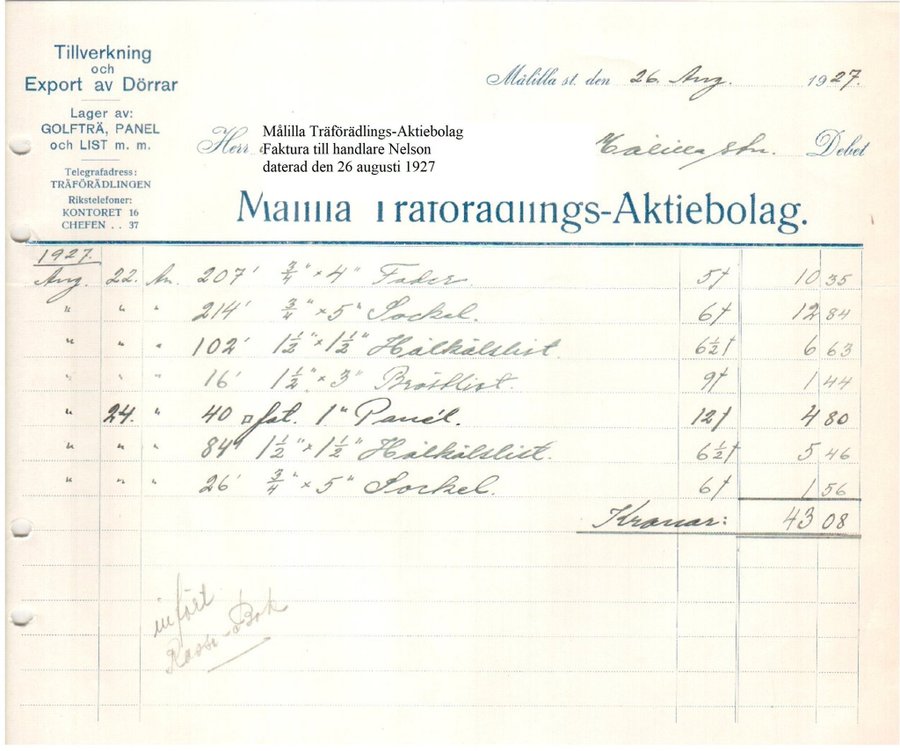 Tillverkning
och
Export av Dörrar
Lager av:
GOLFTRÄ, PANEL
och LIST m. m.
Telegrafadress:
TRÄFÖRÄDLINGEN
Rikstelefoner:
KONTORET 16
CHEFEN . . 37
Målilla st. den 26 Aug. 1927.
Herr
Målilla Träförädlings-Aktiebolag
Faktura till handlare Nelson
daterad den 26 augusti 1927
Målilla Stn. Debet
Målilla Träförädlings-Aktiebolag.
1927.
Aug. 22. An. 207' 3/4" × 4" Foder 5 10 35
" " " 214' 3/4" × 5" Sockel. 6 12 84
" " " 102' 1 1/2" × 1 1/2" Hålkälslist. 6 1/2 6 63
" " " 16' 1 1/2" × 3" Bröstlist. 9 1 44
" 24. " 40 □ fot. 1" Panel. 12 4 80
" " " 84' 1 1/2" × 1 1/2" Hålkälslist. 6 1/2 5 46
" " " 26' 3/4" × 5" Sockel. 6 1 56
Kronor: 43 08
infört